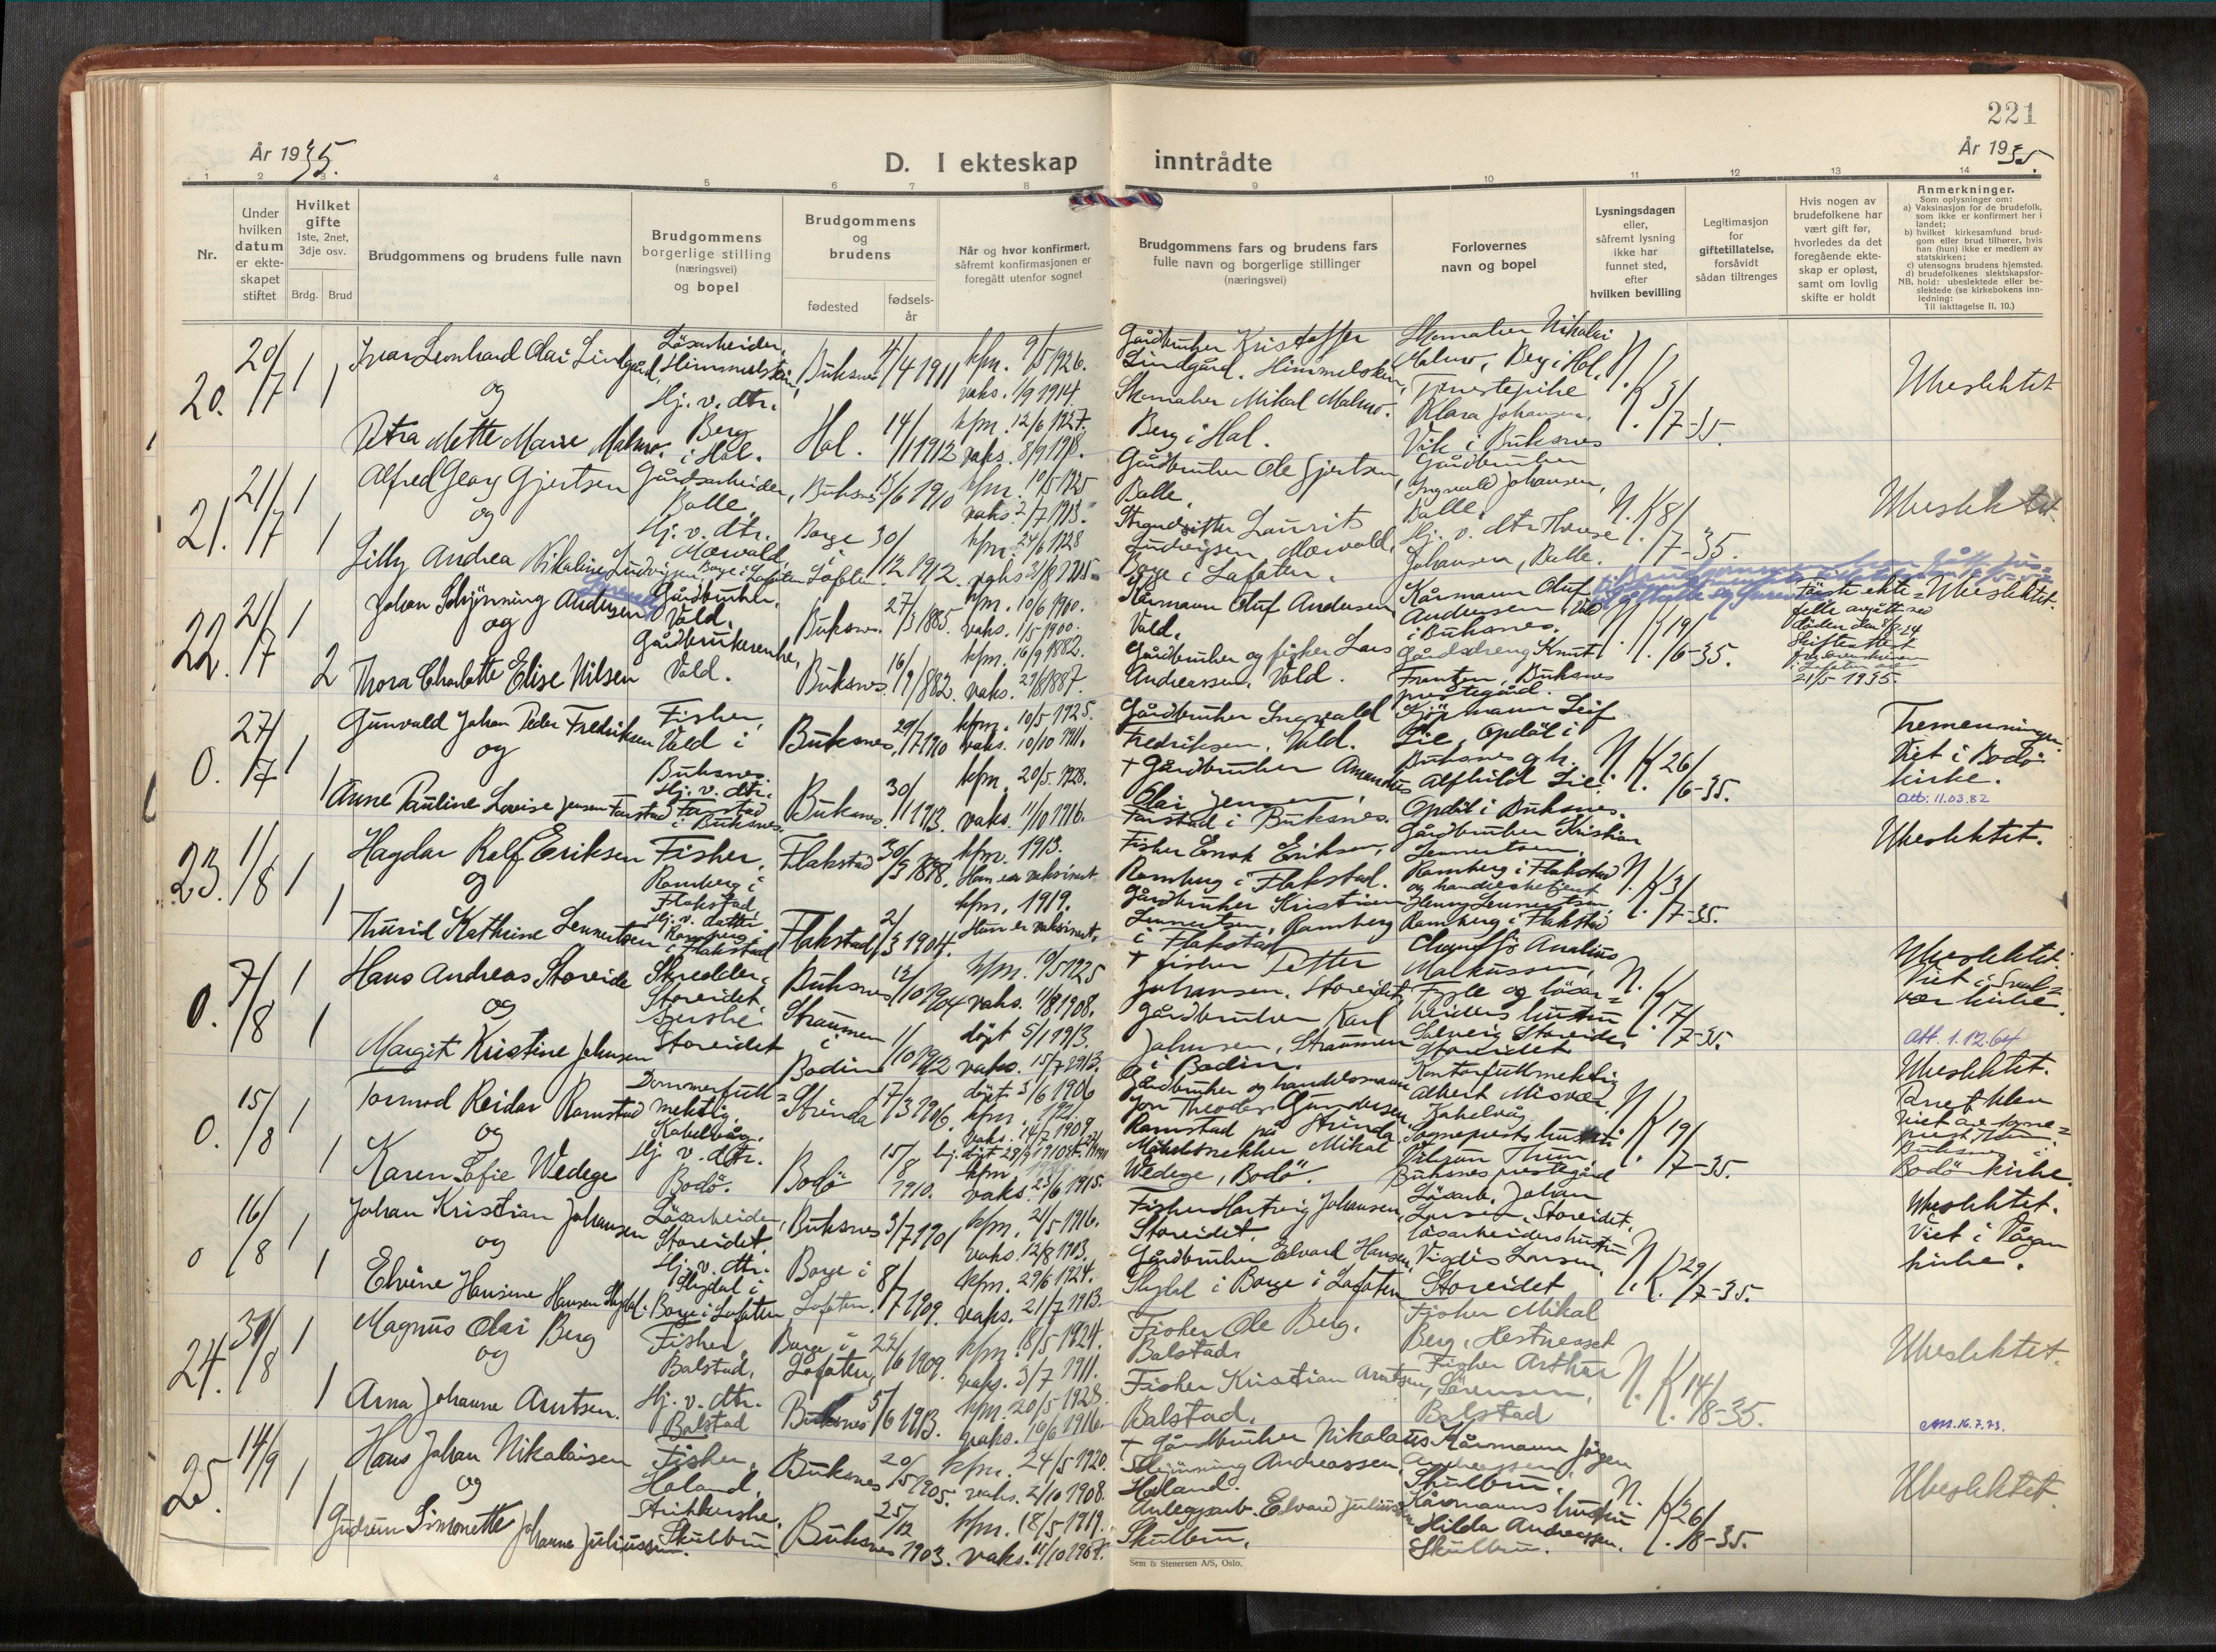 221
År 1935.
D. I ekteskap inntrådte
År 1935.
1 2 3 4 5 6 7 8 9 10 11 12 13 14
Nr.
Under hvilken datum er ekteskapet stiftet
Hvilket gifte
1ste, 2net, 3dje osv.
Brdg. Brud
Brudgommens og brudens fulle navn
Brudgommens borgerlige stilling (næringsvei) og bopel
Brudgommens og brudens
fødested
fødsels-år
Når og hvor konfirmert, såfremt konfirmasjonen er foregått utenfor sognet
Brudgommens fars og brudens fars fulle navn og borgerlige stillinger (næringsvei)
Forlovernes navn og bopel
Lysningsdagen eller, såfremt lysning ikke har funnet sted, efter hvilken bevilling
Legitimasjon for giftetillatelse, forsåvidt sådan tiltrenges
Hvis nogen av brudefolkene har vært gift før, hvorledes da det foregående ekteskap er opløst, samt om lovlig skifte er holdt
Anmerkninger.
Som oplysninger om:
a) Vaksinasjon for de brudefolk, som ikke er konfirmert her i landet;
b) hvilket kirkesamfund brudgom eller brud tilhører, hvis han (hun) ikke er medlem av statskirken;
c) utensogns brudens hjemsted.
d) brudefolkenes slektskapsforhold: ubeslektede eller beslektede (se kirkebokens innledning:
NB. Til iakttagelse II. 10.)
20. 20/7 1 Ivar Leonhard Olai Lindgård, Løsarbeider, Himmelstein, Buksnes 4/4 1911 kfm. 9/5 1926. vaks. 1/9 1914.
Gårdbruker Kristoffer Lindgård. Himmelstein,
Skomaker Nikolai Malmo, Berg i Hol.
N. K. 3/7-35.
Ubeslektet
og
1 Petra Mette Marie Malmo. Hj. v. dtr. Berg i Hol. Hol. 14/11 1912 kfm. 12/6 1927. vaks. 8/9 1918.
Skomaker Mikal Malmo. Berg i Hol.
Tjenestepike Klara Johansen, Vik i Buksnes
21. 21/7 1 Alfred Georg Gjertsen Gårdsarbeider, Balle, Buksnes 13/6 1910 kfm. 10/5 1925 vaks. 2/7 1913.
Gårdbruker Ole Gjertsen, Balle,
Gårdbruker Ingvald Johansen, Balle.
N. K. 8/7-35.
Ubeslektet
og
1 Lilly Andrea Nikoline Ludvigsen, Hj. v. dtr. Mærvold, Borge i Lofoten Borge i Lofoten 30/12 1912. kfm. 24/6 1928 vaks. 3/8 1915.
Strandsitter Laurits Ludvigsen, Mærvold, Borge i Lofoten.
Hj. v. dtr. Johansen, Balle.
22. 21/7 1 Johan Schjønning Andersen Gårdbruker, Vold. Buksnes. 27/3 1885. kfm. 10/6 1900. vaks. 1/5 1900.
Kårmann Oluf Andersen Vold.
Kårmann Oluf Andersen Vold i Buksnes.
N. K. 19/6-35.
Første ekte= felle avgått ved døden den
Skifteattest
i Lofoten
21/5 1935.
Ubeslektet.
og
2 Thora Charlotte Elise Nilsen Gårdbrukerenke, Vold. Buksnes. 16/9 1882. kfm. 16/9 1882. vaks. 29/6 1887.
Gårdbruker og fisker Lars Andreassen, Vold.
Gårdsdreng Knut Frantzen, Buksnes prestegård.
0. 27/7 1 Gunvald Johan Peder Fredriksen Fisker, Vold i Buksnes. Buksnes, 29/7 1910 kfm. 10/5 1925. vaks. 10/10 1911.
Gårdbruker Ingvald Fredriksen, Vold.
Kjøpmann Leif Lie, Opdøl i Buksnes og h.
N. K. 26/6-35.
Tremenninger. Viet i Bodø kirke.
Att. 11.03.82
og
1 Anne Pauline Lovise Jensen Farstad Hj. v. dtr. Farstad i Buksnes. Buksnes. 30/11 1913. kfm. 20/5 1928. vaks. 11/10 1916.
† Gårdbruker Amandus Olai Jensen, Farstad i Buksnes.
Alfhild Lie. Opdøl i Buksnes.
23. 1/8 1 Hagdar Rolf Eriksen Fisker, Ramberg i Flakstad Flakstad 30/3 1898. kfm. 1913. Han er vaksinert.
Fisker Enok Eriksen, Ramberg i Flakstad.
Gårdbruker Kristian Lennertsen, Ramberg i Flakstad
N. K. 3/7-35.
Ubeslektet.
og
1 Thurid Kathrine Lennertsen Hj. v. datter Ramberg i Flakstad Flakstad 2/3 1904. kfm. 1919. Hun er vaksinert.
Gårdbruker Kristian Lennertsen, Ramberg i Flakstad
og handelsbetjent Henry Lennertsen, Ramberg i Flakstad
0. 7/8 1 Hans Andreas Storeide Skredder, Storeidet, Buksnes 13/10 1904 kfm. 10/5 1925 vaks. 11/8 1908.
† fisker Petter Johansen, Storeidet,
Chauffør Analius Markussen, Fygle og løsar=
N. K. 17/7-35.
Ubeslektet. Viet i Svol= vær kirke.
Att. 1.12.64
og
1 Margit Kristine Johnsen Storeidet Straumen i Bodin 1/10 1912 døpt 5/1 1913. vaks. 15/7 1913.
Gårdbruker Karl Johnsen, Straumen i Bodin.
beiders hustru Solveig Storeide, Storeidet
0. 15/8 1 Tormod Reidar Ramstad Dommerfull= mektig, Kabelvåg. Strinda 17/3 1906. døpt 3/6 1906 kfm. 1921. vaks. 14/7 1909
Gårdbruker og handelsmann Jon Theodor Gundersen Ramstad på Strinda.
Kontorfullmektig Albert Misvær, Kabelvåg
N. K. 19/7-35.
Ubeslektet.
Viet av sogne= prest Thun, Buksnes i Bodø kirke.
og
1 Karen Sofie Wedege Hj. v. dtr. Bodø. Bodø 15/8 1910. vaks. 23/6 1915.
Møbelsnekker Mikal Wedege, Bodø.
Sogneprests hustru Thun, Buksnes prestegård
0 16/8 1 Johan Kristian Johansen Løsarbeider, Storeidet. Buksnes 3/7 1901 kfm. 21/5 1916. vaks. 12/8 1903.
Fisker Hartvig Johansen, Storeidet.
Løsarb. Johan Larsen, Storeidet.
N. K. 29/7-35.
Ubeslektet. Viet i Vågan kirke.
og
1 Elvine Hansine Hansen Slydal. Hj. v. dtr. Slydal i Borge i Lofoten Borge i Lofoten. 8/7 1909. kfm. 29/6 1924. vaks. 21/7 1913.
Gårdbruker Edvard Hansen, Slydal i Borge i Lofoten
løsarbeiders hustru Vigdis Larsen, Storeidet
24. 31/8 1 Magnus Olai Berg Fisker, Balstad. Borge i Lofoten, 22/6 1909. kfm. 18/5 1924. vaks. 3/7 1911.
Fisker Ole Berg, Balstad.
Fisker Mikal Berg, Hestnesset
N. K. 14/8-35.
Ubeslektet.
og
1 Arna Johanne Arntsen. Hj. v. dtr. Balstad Buksnes 5/6 1913. kfm. 20/5 1928. vaks. 16/6 1916.
Fisker Kristian Arntsen, Balstad.
Fisker Arthur Sørensen, Balstad
Att. 16.7.73.
25. 14/9 1 Hans Johan Nikolaisen Fisker, Holand. Buksnes 20/5 1905. kfm. 24/5 1920. vaks. 2/10 1908.
† Gårdbruker Nikolaus Schjønning Andreassen, Holand.
Kårmann Jørgen Andreassen, Skulbru.
N. K. 26/8-35.
Ubeslektet.
og
1 Gudrun Simonette Johanne Juliussen. Strikkerske, Skulbru. Buksnes 25/12 1903. kfm. 18/5 1919. vaks. 11/10 1907.
Anleggsarb. Edvard Juliussen Skulbru.
Kårmanns hustru Hilda Andreassen. Skulbru.
Sem & Stenersen A/S, Oslo.